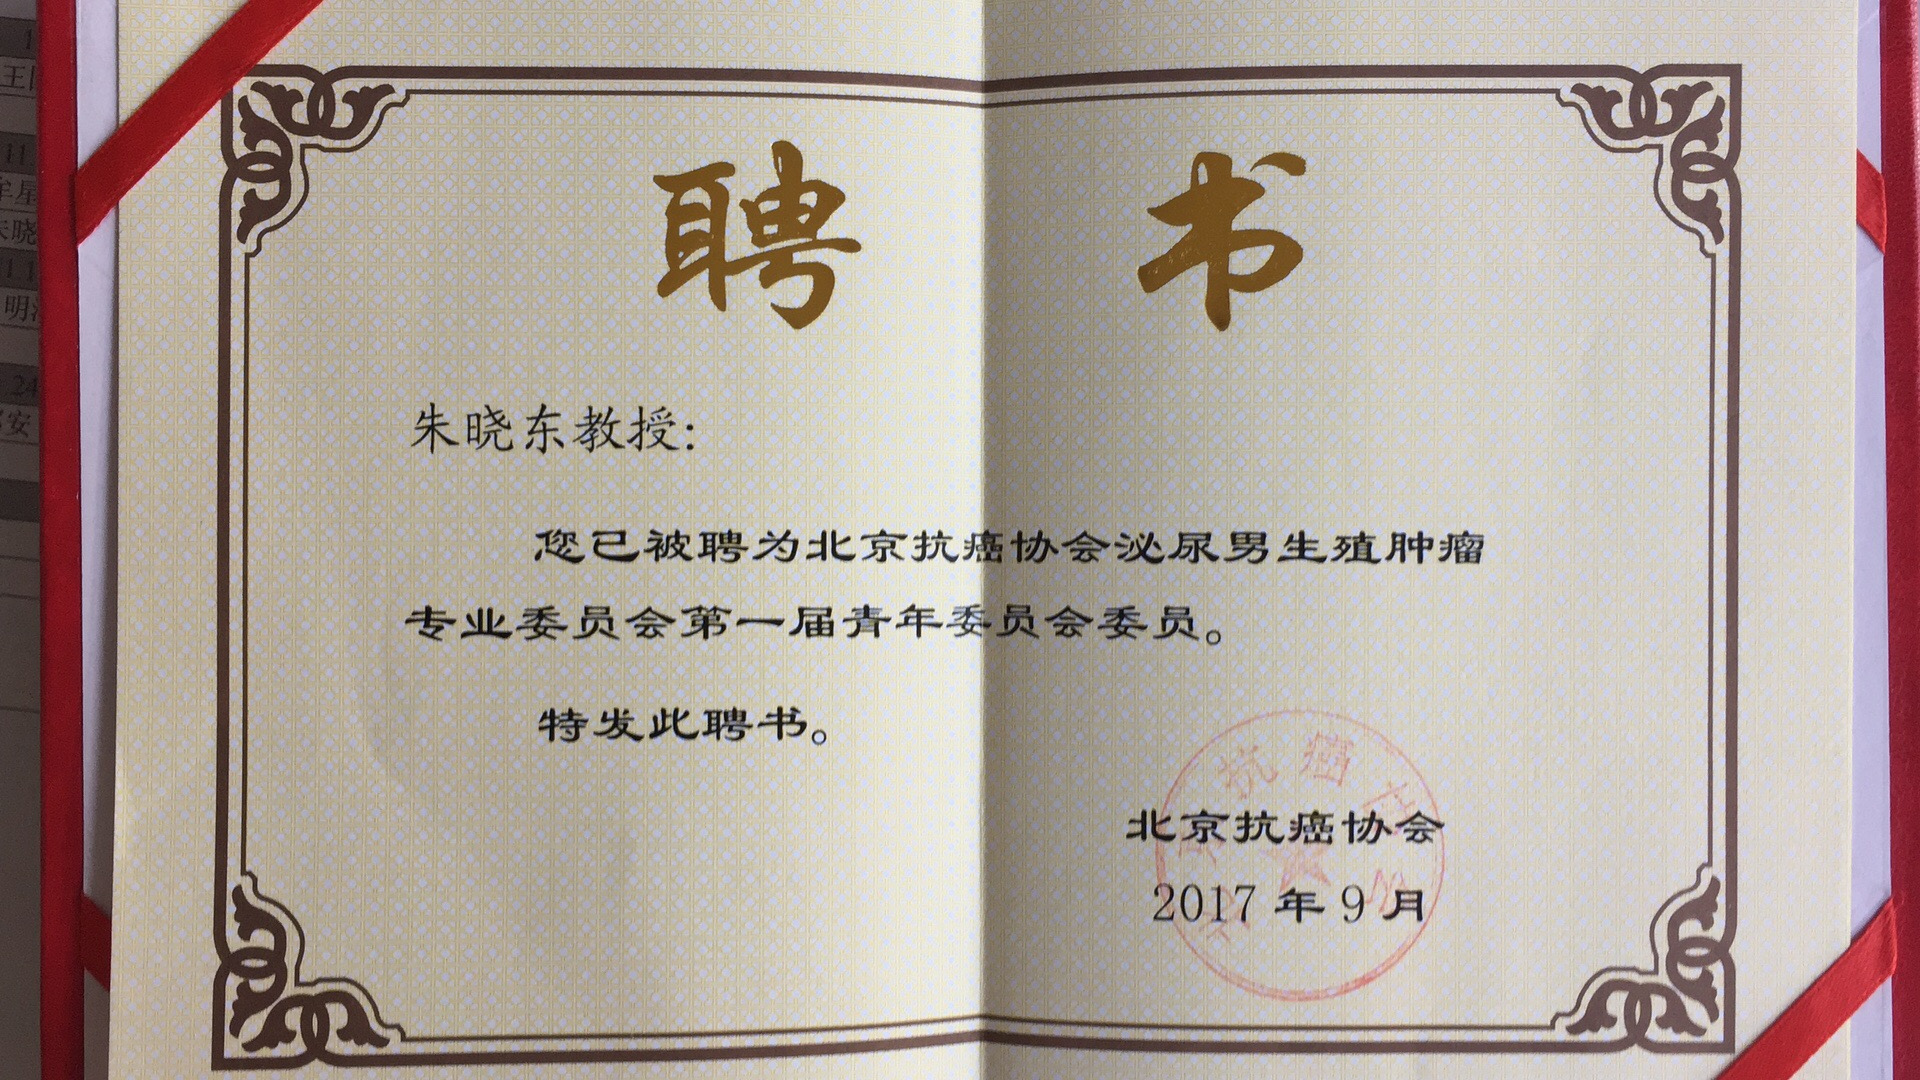 聘 书
朱晓东教授:
您已被聘为北京抗癌协会泌尿男生殖肿瘤
专业委员会第一届青年委员会委员。
特发此聘书。
北京抗癌协会
2017 年 9 月
抗癌
24